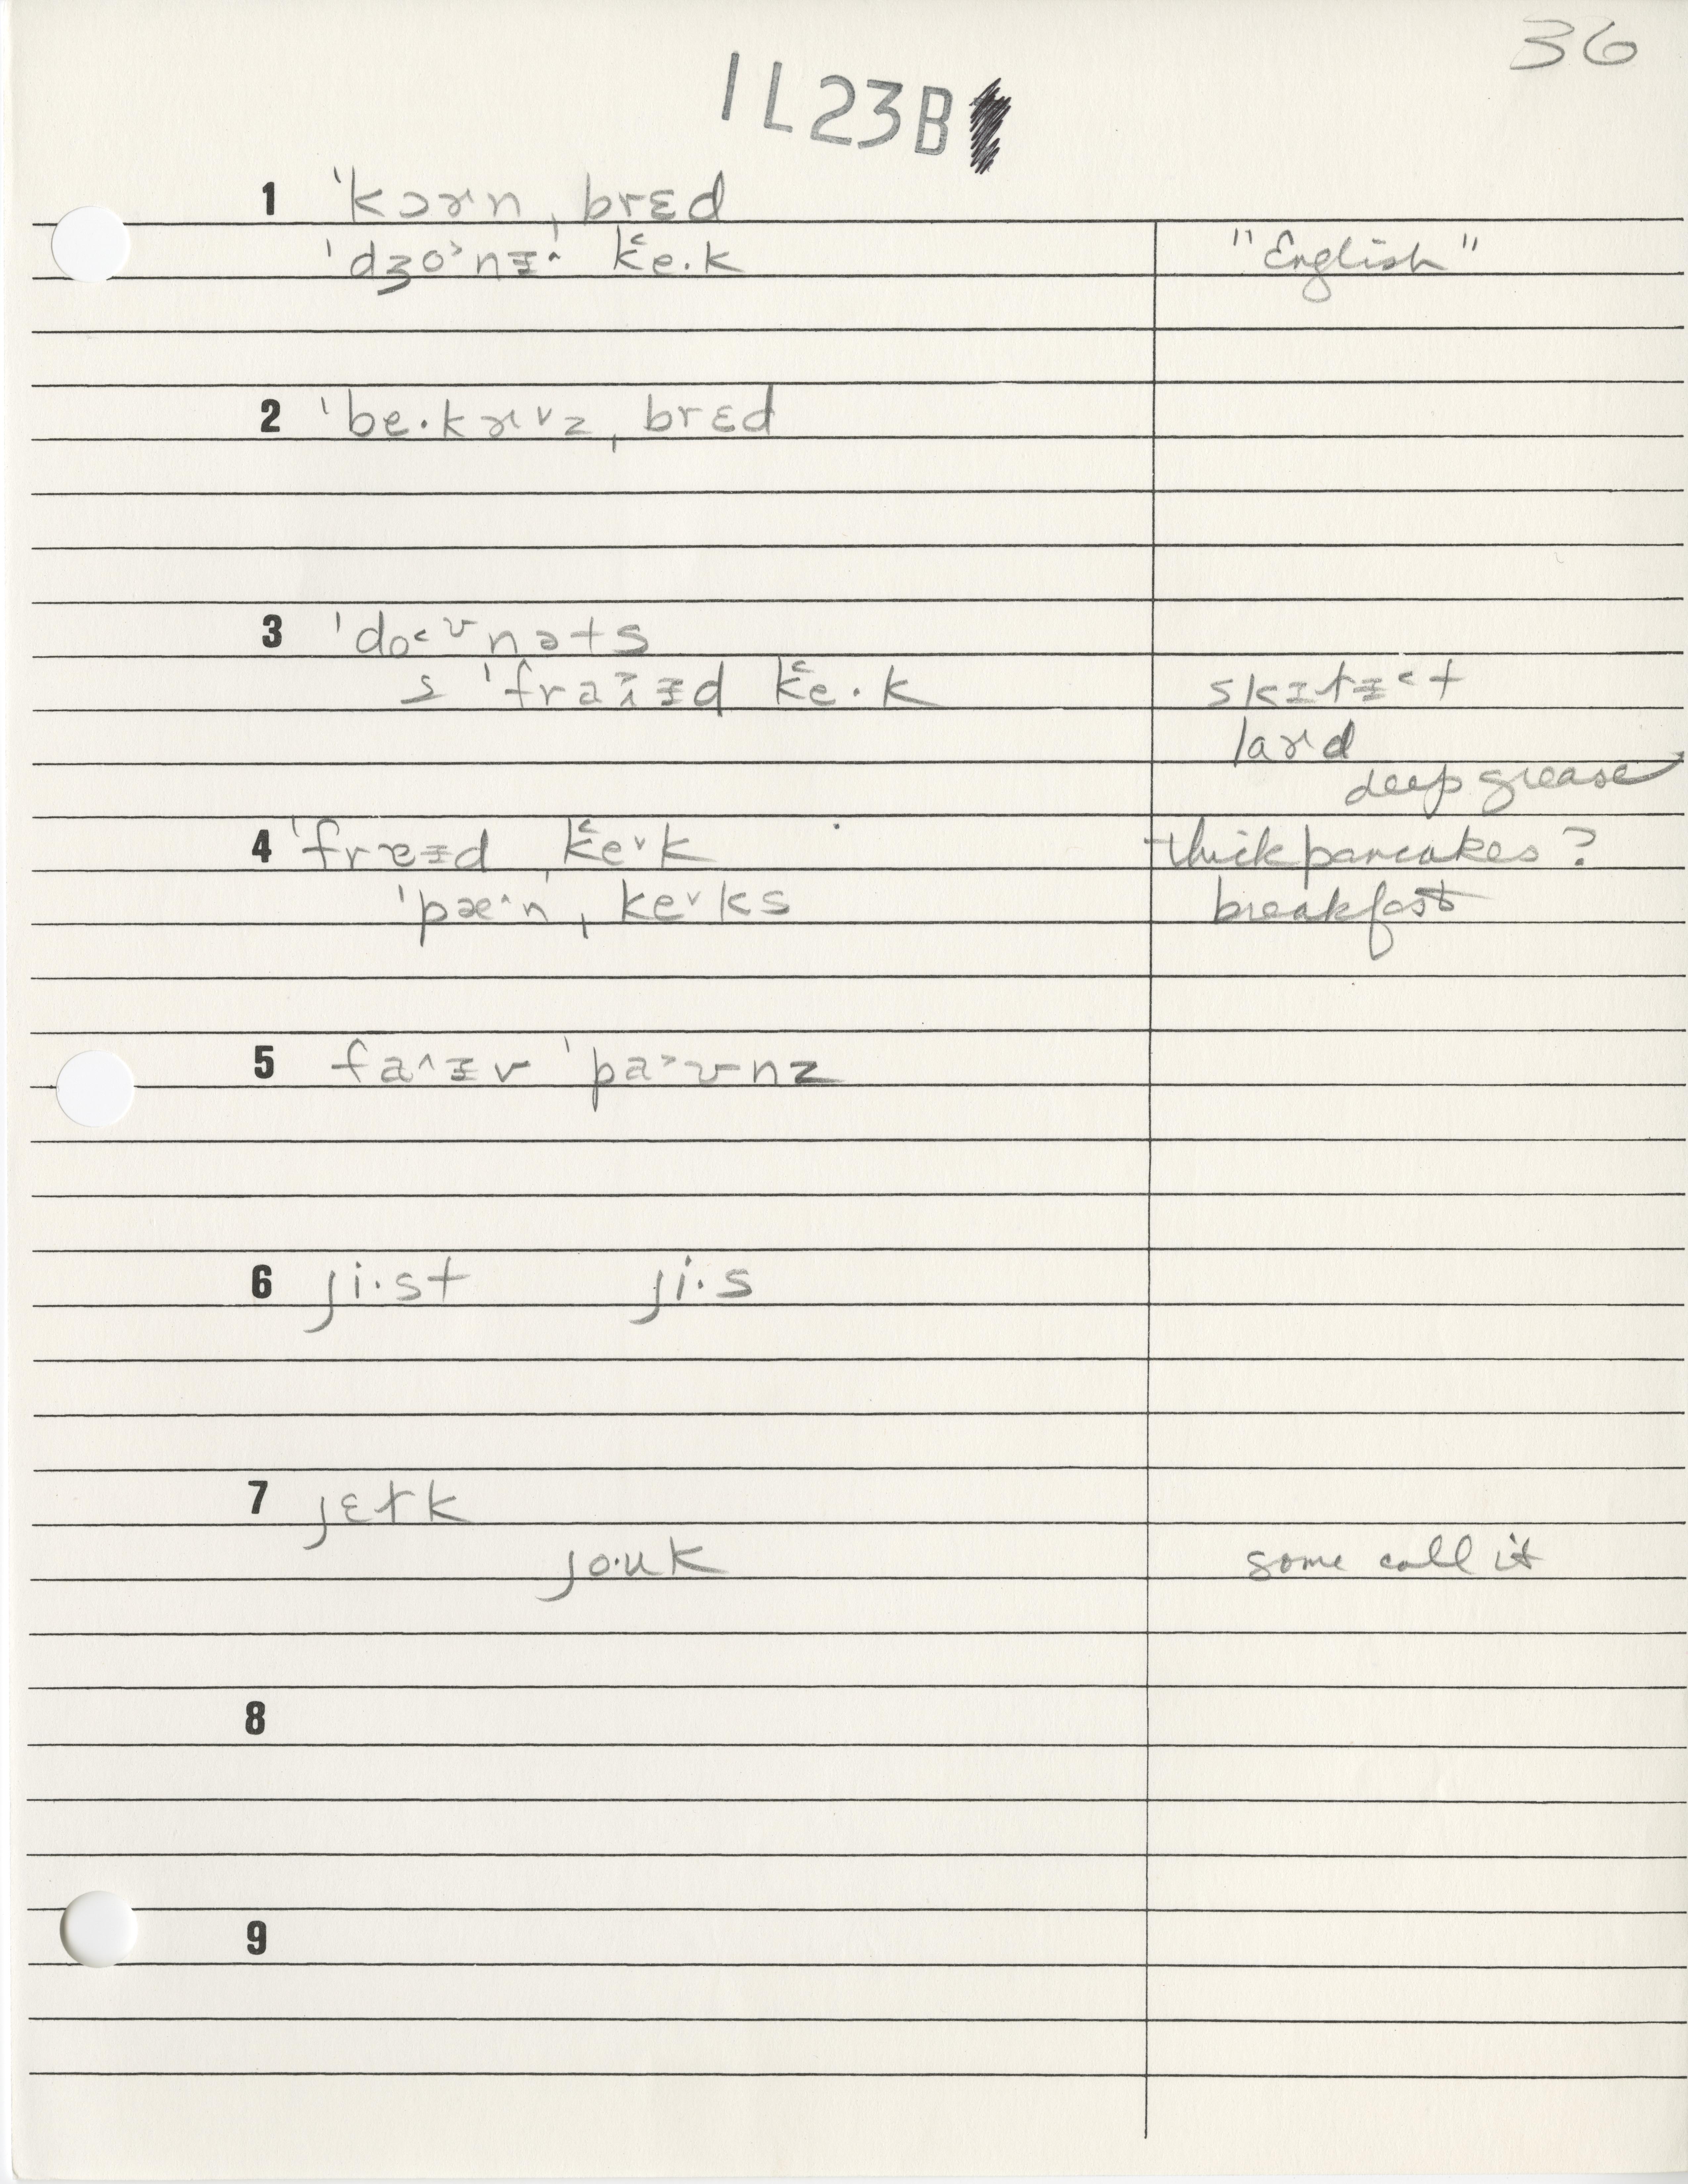 36
IL23B
1 ˈkɔɚn ˌbrɛd
ˈdʒo˃nɪ̵ˑ ˈk̯eˑk "English"
2 ˈbeˑkɚ˅z ˌbrɛd
3 ˈdo˂ʊnəts
s ˈfraɪ̵d keˑk skɪɫɪ̵˂t
laɚd
deep grease
4 ˈfrɐɪ̵d ke˅k thick pancakes ?
ˈpæ˄nˈ ˌke˅ks breakfast
5 fa˄ɪ̵v ˈpa˃ʊnz
6 jiˑst jiˑs
7 jɛɫk
joˑuk some call it
8
9